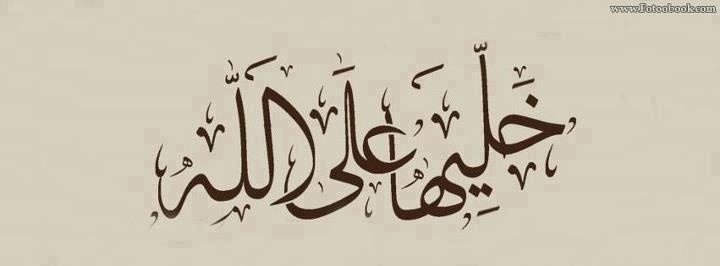 www.Fotoobook.com
خَلِّيها عَلَى اللَّه